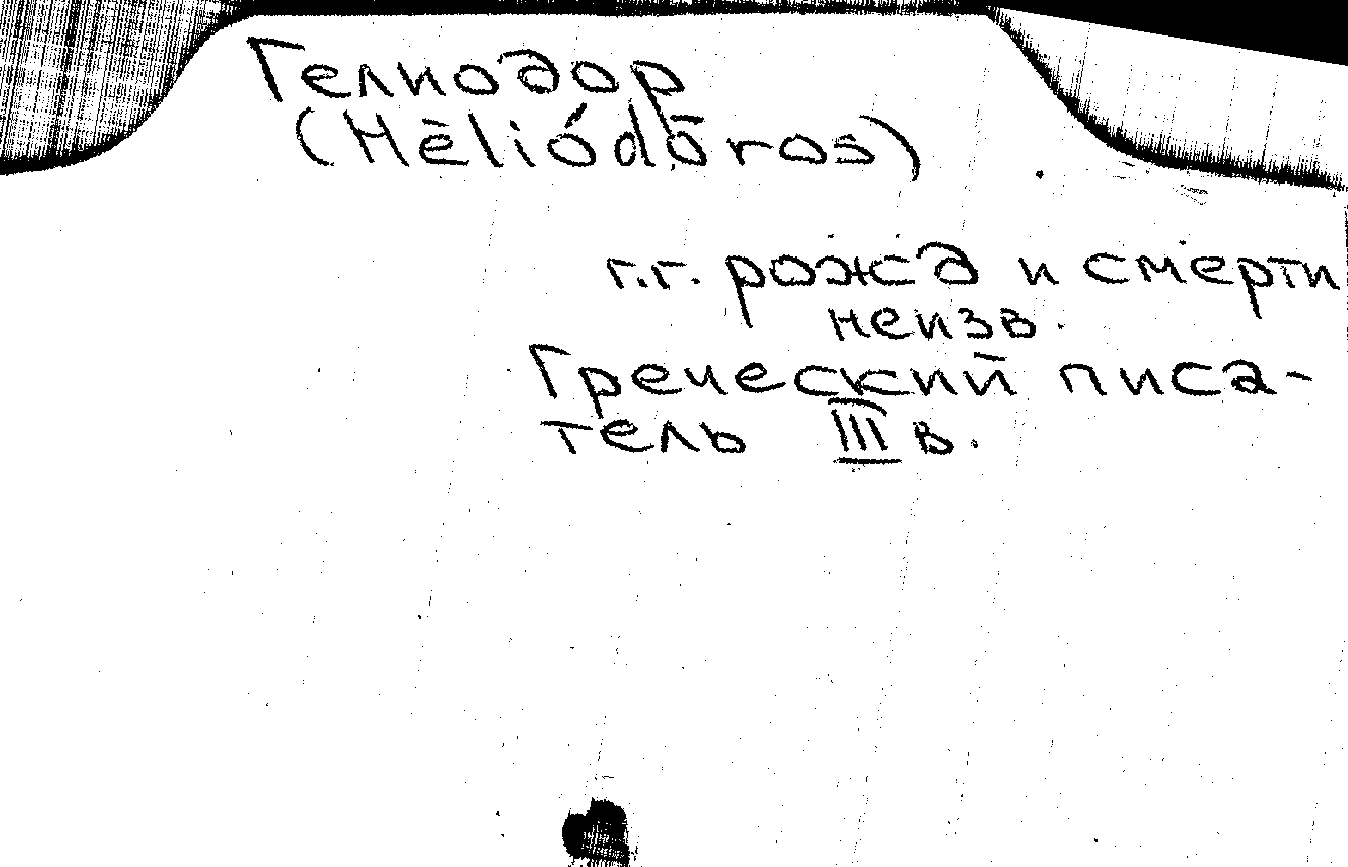 Гелиодор
(Hēliódōros)
г.г. рожд и смерти
неизв.
Греческий писа-
тель III в.